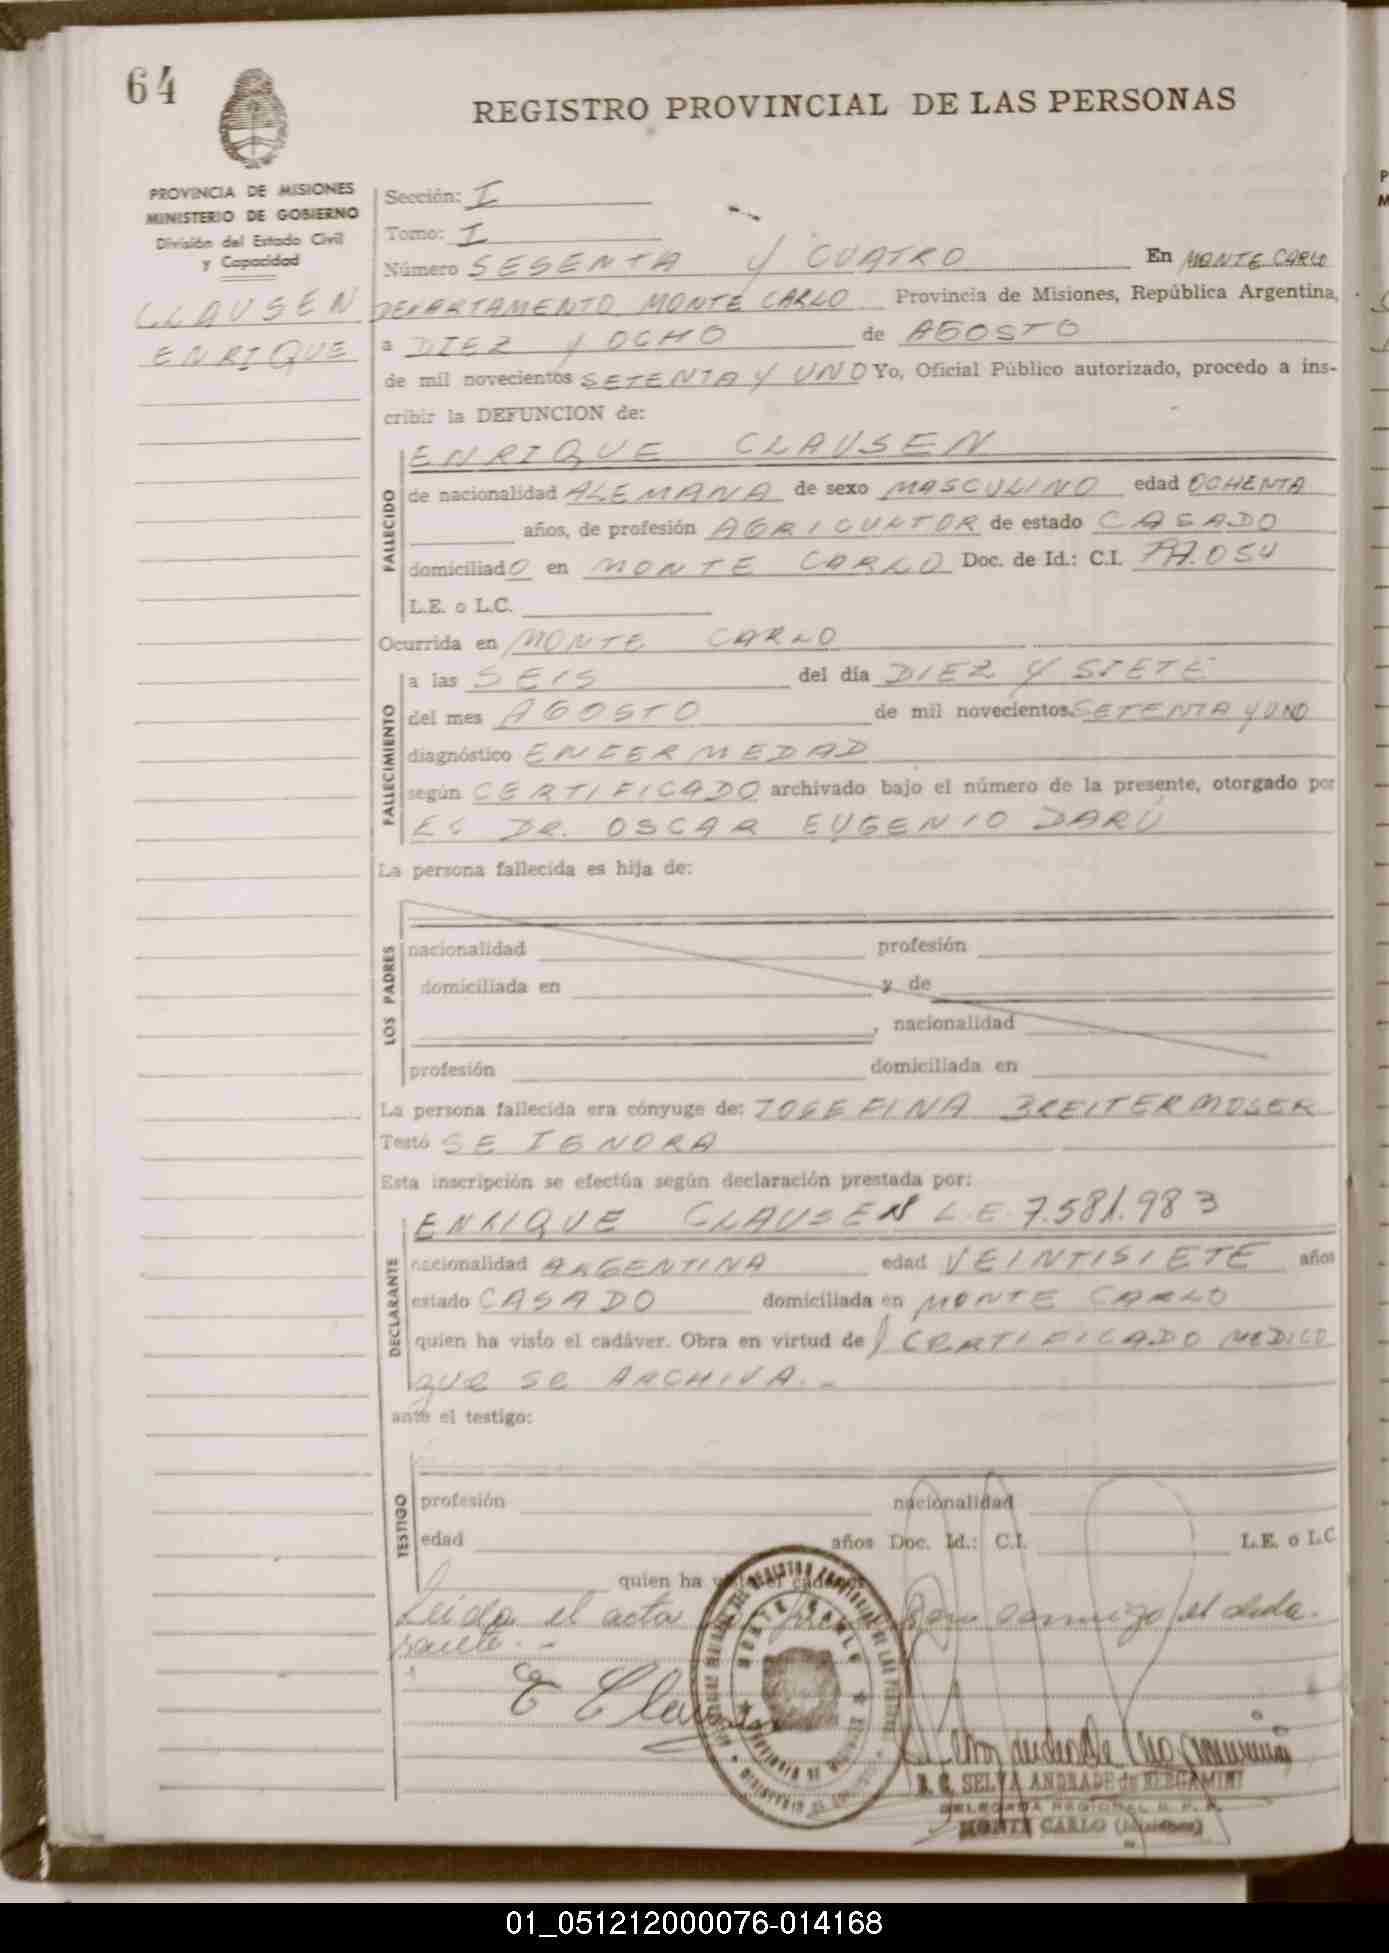 64
REGISTRO PROVINCIAL DE LAS PERSONAS
PROVINCIA DE MISIONES
MINISTERIO DE GOBIERNO
División del Estado Civil
y Capacidad
CLAUSEN
ENRIQUE
Sección: I
Tomo: I
Número SESENTA Y CUATRO En MONTE CARLO
DEPARTAMENTO MONTE CARLO Provincia de Misiones, República Argentina,
a DIEZ Y OCHO de AGOSTO
de mil novecientos SETENTA Y UNO Yo, Oficial Público autorizado, procedo a ins-
cribir la DEFUNCION de:
FALLECIDO
ENRIQUE CLAUSEN
de nacionalidad ALEMANA de sexo MASCULINO edad OCHENTA
años, de profesión AGRICULTOR de estado CASADO
domiciliado en MONTE CARLO Doc. de Id.: C.I.
L.E. o L.C.
Ocurrida en MONTE CARLO
FALLECIMIENTO
a las SEIS del día DIEZ Y SIETE
del mes AGOSTO de mil novecientos SETENTA Y UNO
diagnóstico ENFERMEDAD
según CERTIFICADO archivado bajo el número de la presente, otorgado por
EL DR. OSCAR EUGENIO DARÚ
La persona fallecida es hija de:
LOS PADRES
nacionalidad profesión
domiciliada en y de
, nacionalidad
profesión domiciliada en
La persona fallecida era cónyuge de: JOSEFINA BREITERMOSER
Testó SE IGNORA
Esta inscripción se efectúa según declaración prestada por:
DECLARANTE
ENRIQUE CLAUSEN L.E. 7.581.983
nacionalidad ARGENTINA edad VEINTISIETE años
estado CASADO domiciliada en MONTE CARLO
quien ha visto el cadáver. Obra en virtud de CERTIFICADO MEDICO
que se ARCHIVA.-
ante el testigo:
TESTIGO
profesión nacionalidad
edad años Doc. Id.: C.I. L.E. o L.C
quien ha
Leida el acta conmigo el decla-
rante.-
E Clausen
MONTE CARLO
R. C. SELVA ANDRADE de BERGAMINI
DELEGADA REGIONAL R. P. P.
MONTE CARLO (Misiones)
01_051212000076-014168